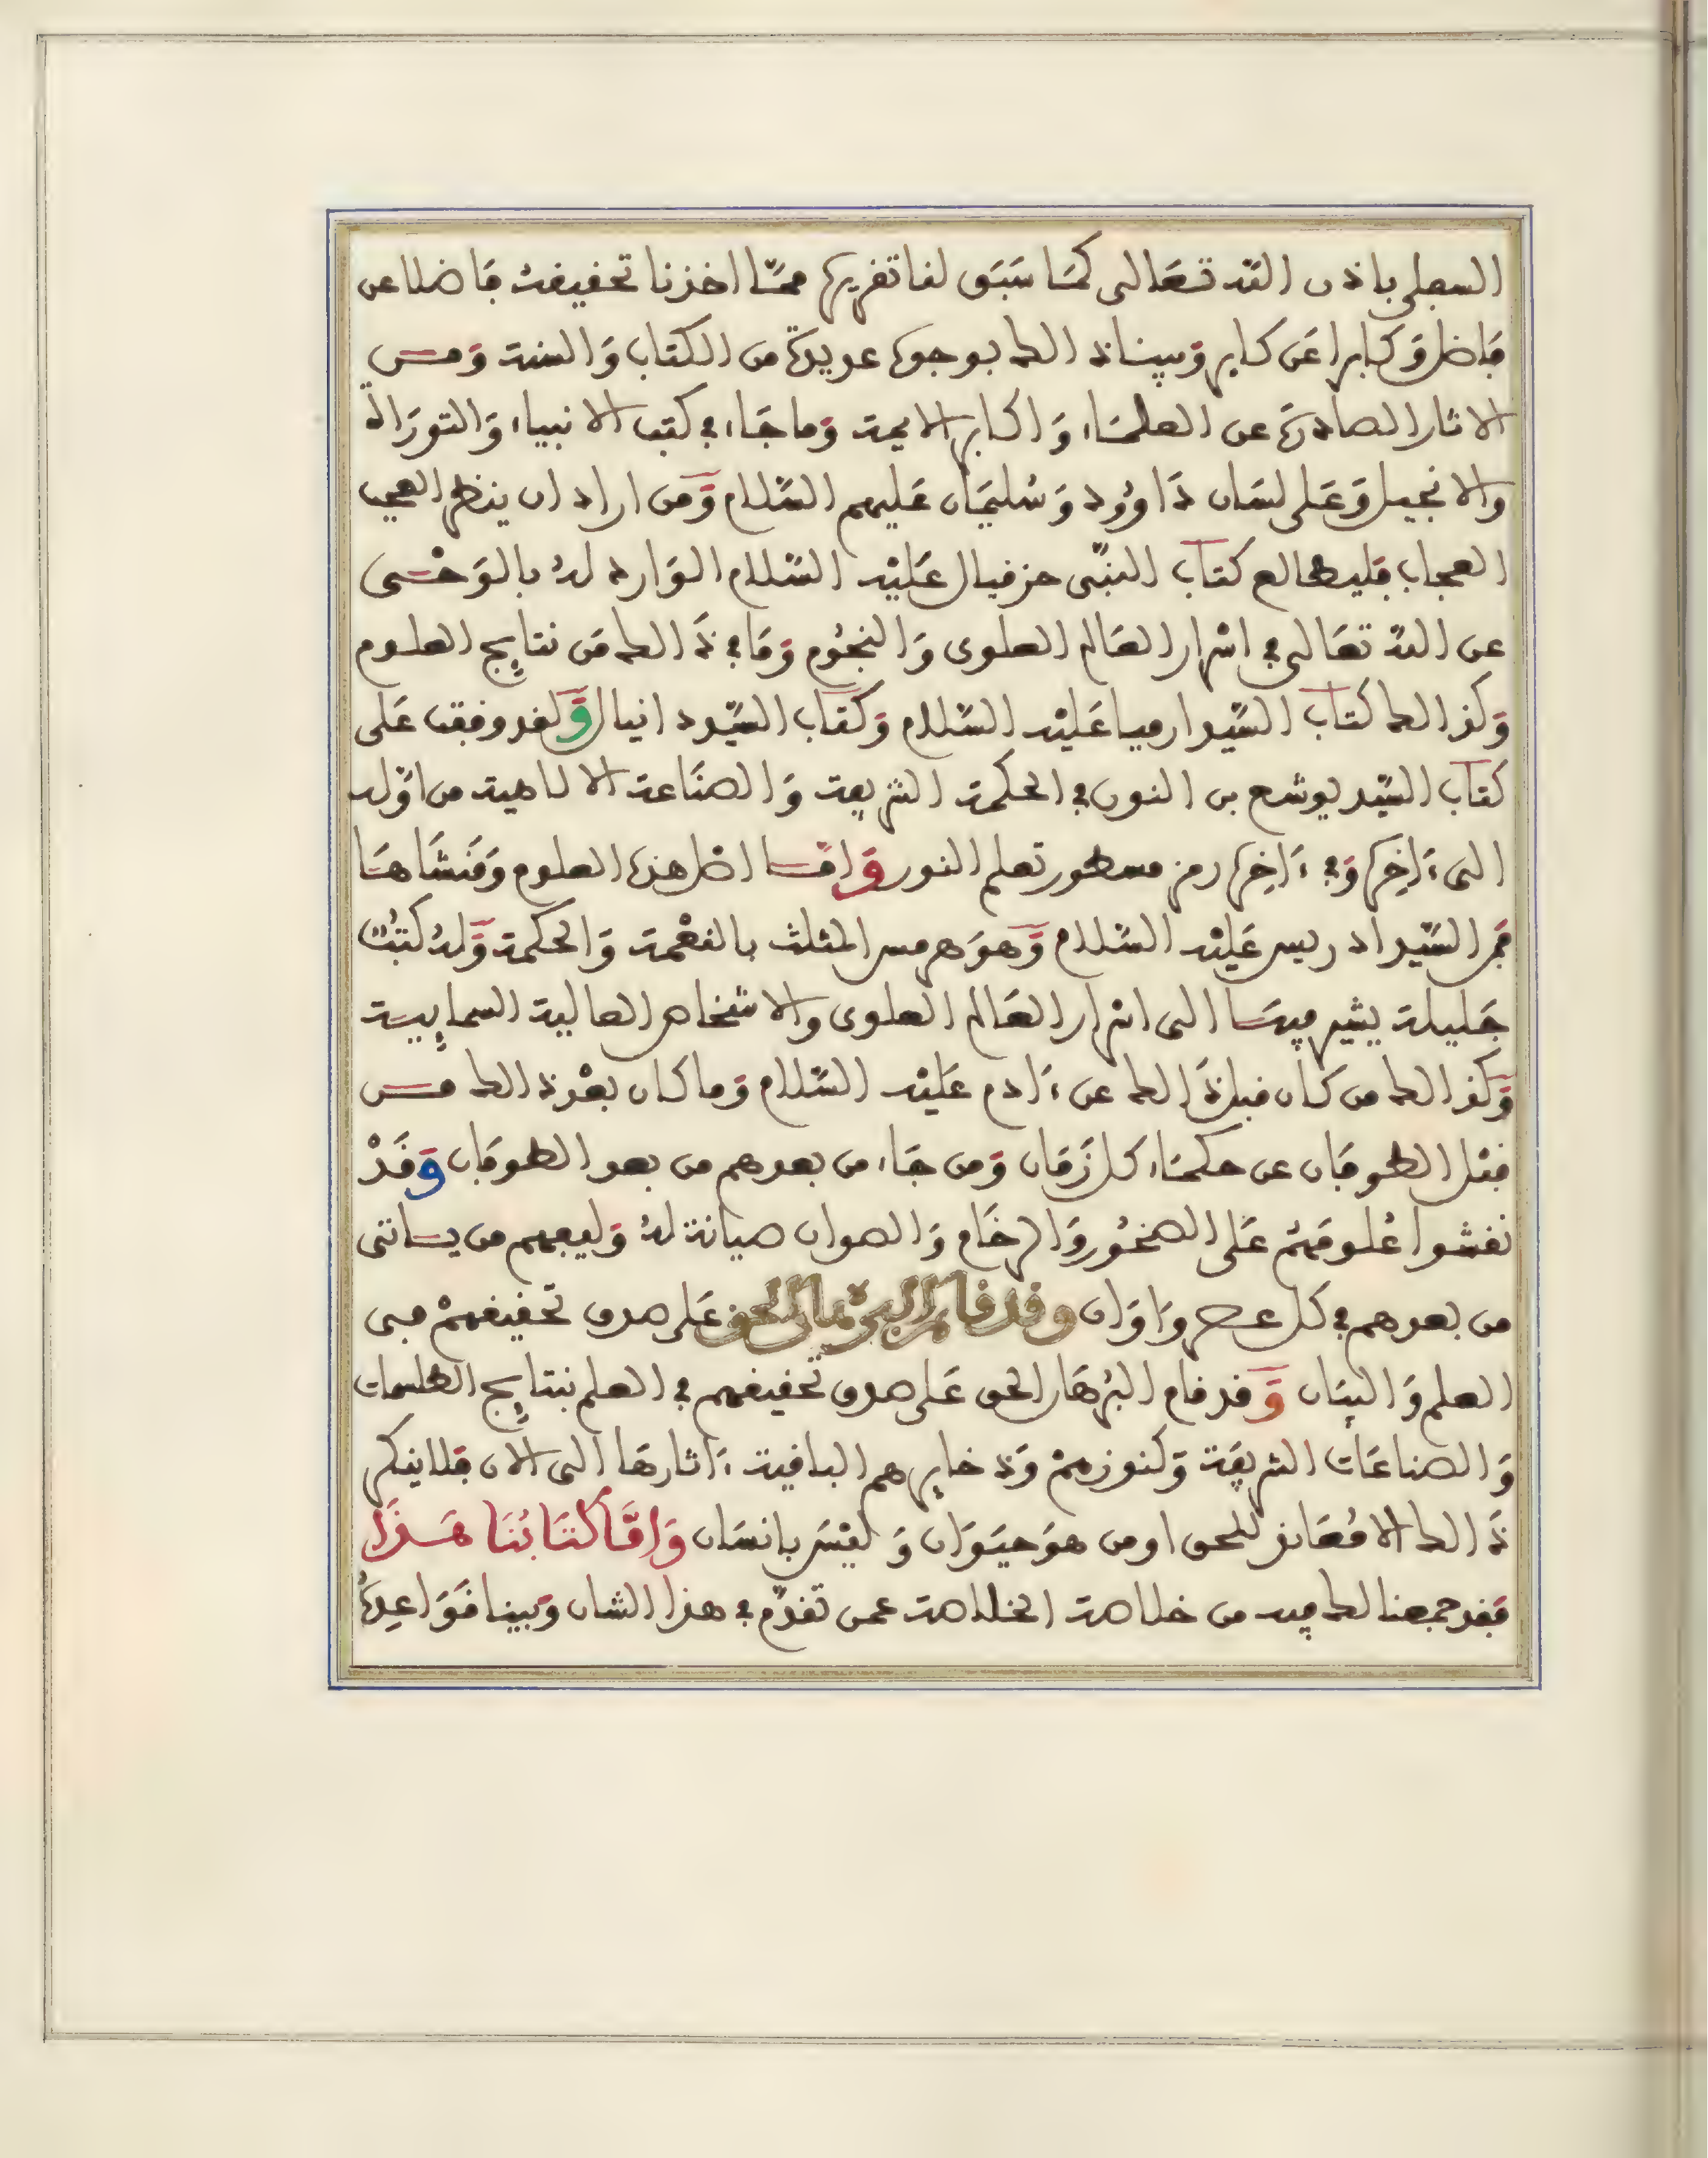 السفلى باذن الله تعالى كما سبق لنا تقريره مما اخذنا تحقيقه فاضلا عن
فاضل وكابرا عن كابر وبينا ذالك بوجوه عديدة من الكتاب والسنة ومن
الاثار الصادرة عن العلماء واكابر الايمة وما جاء في كتب الانبياء والتوراة
والانجيل وعلى لسان داوود وسليمان عليهم السلام ومن اراد ان ينظر العجب
العجاب فليطالع كتاب النبي حزقيال عليه السلام الوارد له بالوحي
عن الله تعالى في اسرار العالم العلوى والنجوم وما في ذالك من نتايج العلوم
وكذالك كتاب السيد ارميا عليه السلام وكتاب السيد دانيال ولقد وفقت على
كتاب السيد يوشع بن النون في الحكمة الشريفة والصناعة الالاهية من اوله
الى ءاخره وفي ءاخره رمز مسطور تعلم النور واما اصل هذه العلوم ومنشاها
فمن السيد ادريس عليه السلام وهو هرمس المثلث بالنعمة والحكمة وله كتب
جليلة يشير فيها الى اسرار العالم العلوى والاشخاص العالية السمايية
وكذالك من كان قبل ذالك عن ءادم عليه السلام وما كان بعد ذالك من
قبل الطوفان عن حكماء كل زمان ومن جاء من بعدهم من بعد الطوفان وقد
نقشوا علومهم على الصخور والرخام والصوان صيانة له وليفهم من ياتى
من بعدهم في كل عصر واوان وقد قام البرهان الحق على صدق تحقيقهم في
العلم والبيان وقد قام البرهان الحق على صدق تحقيقهم في العلم بنتايج الطلسمات
والصناعات الشريفة وكنوزهم وذخايرهم الباقية ءاثارها الى الان فلا ينكر
ذالك الا معاند للحق او من هو حيوان وليس بانسان واما كتابنا هذا
فقد جمعنا لك فيه من خلاصة الخلاصة عمن تقدم في هذا الشان وبينا قواعده